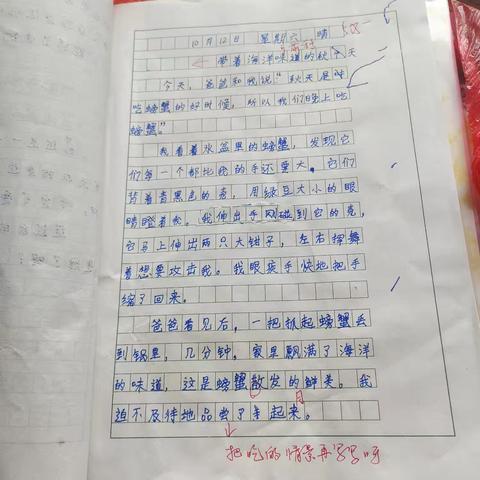 10月12日 星期六 晴
带着海洋味道的秋天
今天，爸爸和我说“秋天是
吃螃蟹的好时候，所以我们晚上吃
螃蟹。”
我看着水盆里的螃蟹，发现它
们每一个都比我的手还要大，它们
背着青黑色的壳，用绿豆大小的眼
睛瞪着我。我伸出手刚碰到它的壳，
它马上伸出两只大钳子，左右挥舞
着想要攻击我。我眼疾手快地把手
缩了回来。
爸爸看见后，一把抓起螃蟹丢
到锅里，几分钟。家里飘满了海洋
的味道，这是螃蟹散发的鲜美。我
迫不及待地品尝了起来。
把吃的情景再写写呀